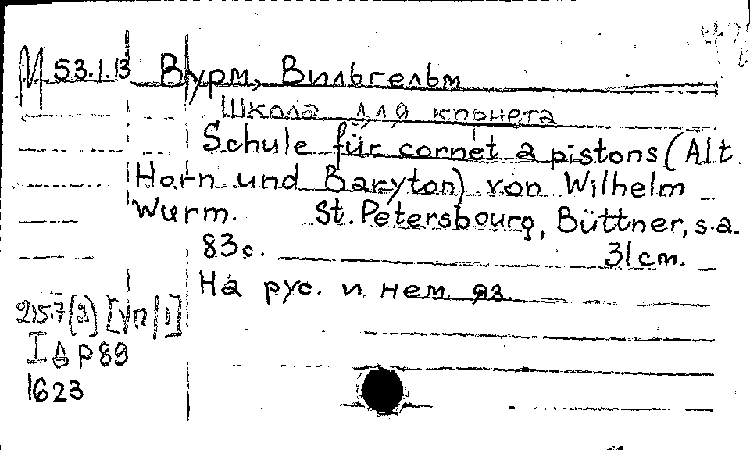 М 53.1.13 Вурм, Вильгельм
Школа для корнета
Schule für cornet a pistons (Alt
Horn und Baryton) von Wilhelm
Wurm. St. Petersbourg, Büttner, s.a.
83с. 31cm.
На рус. и нем. яз.
I Δ р 89
1623